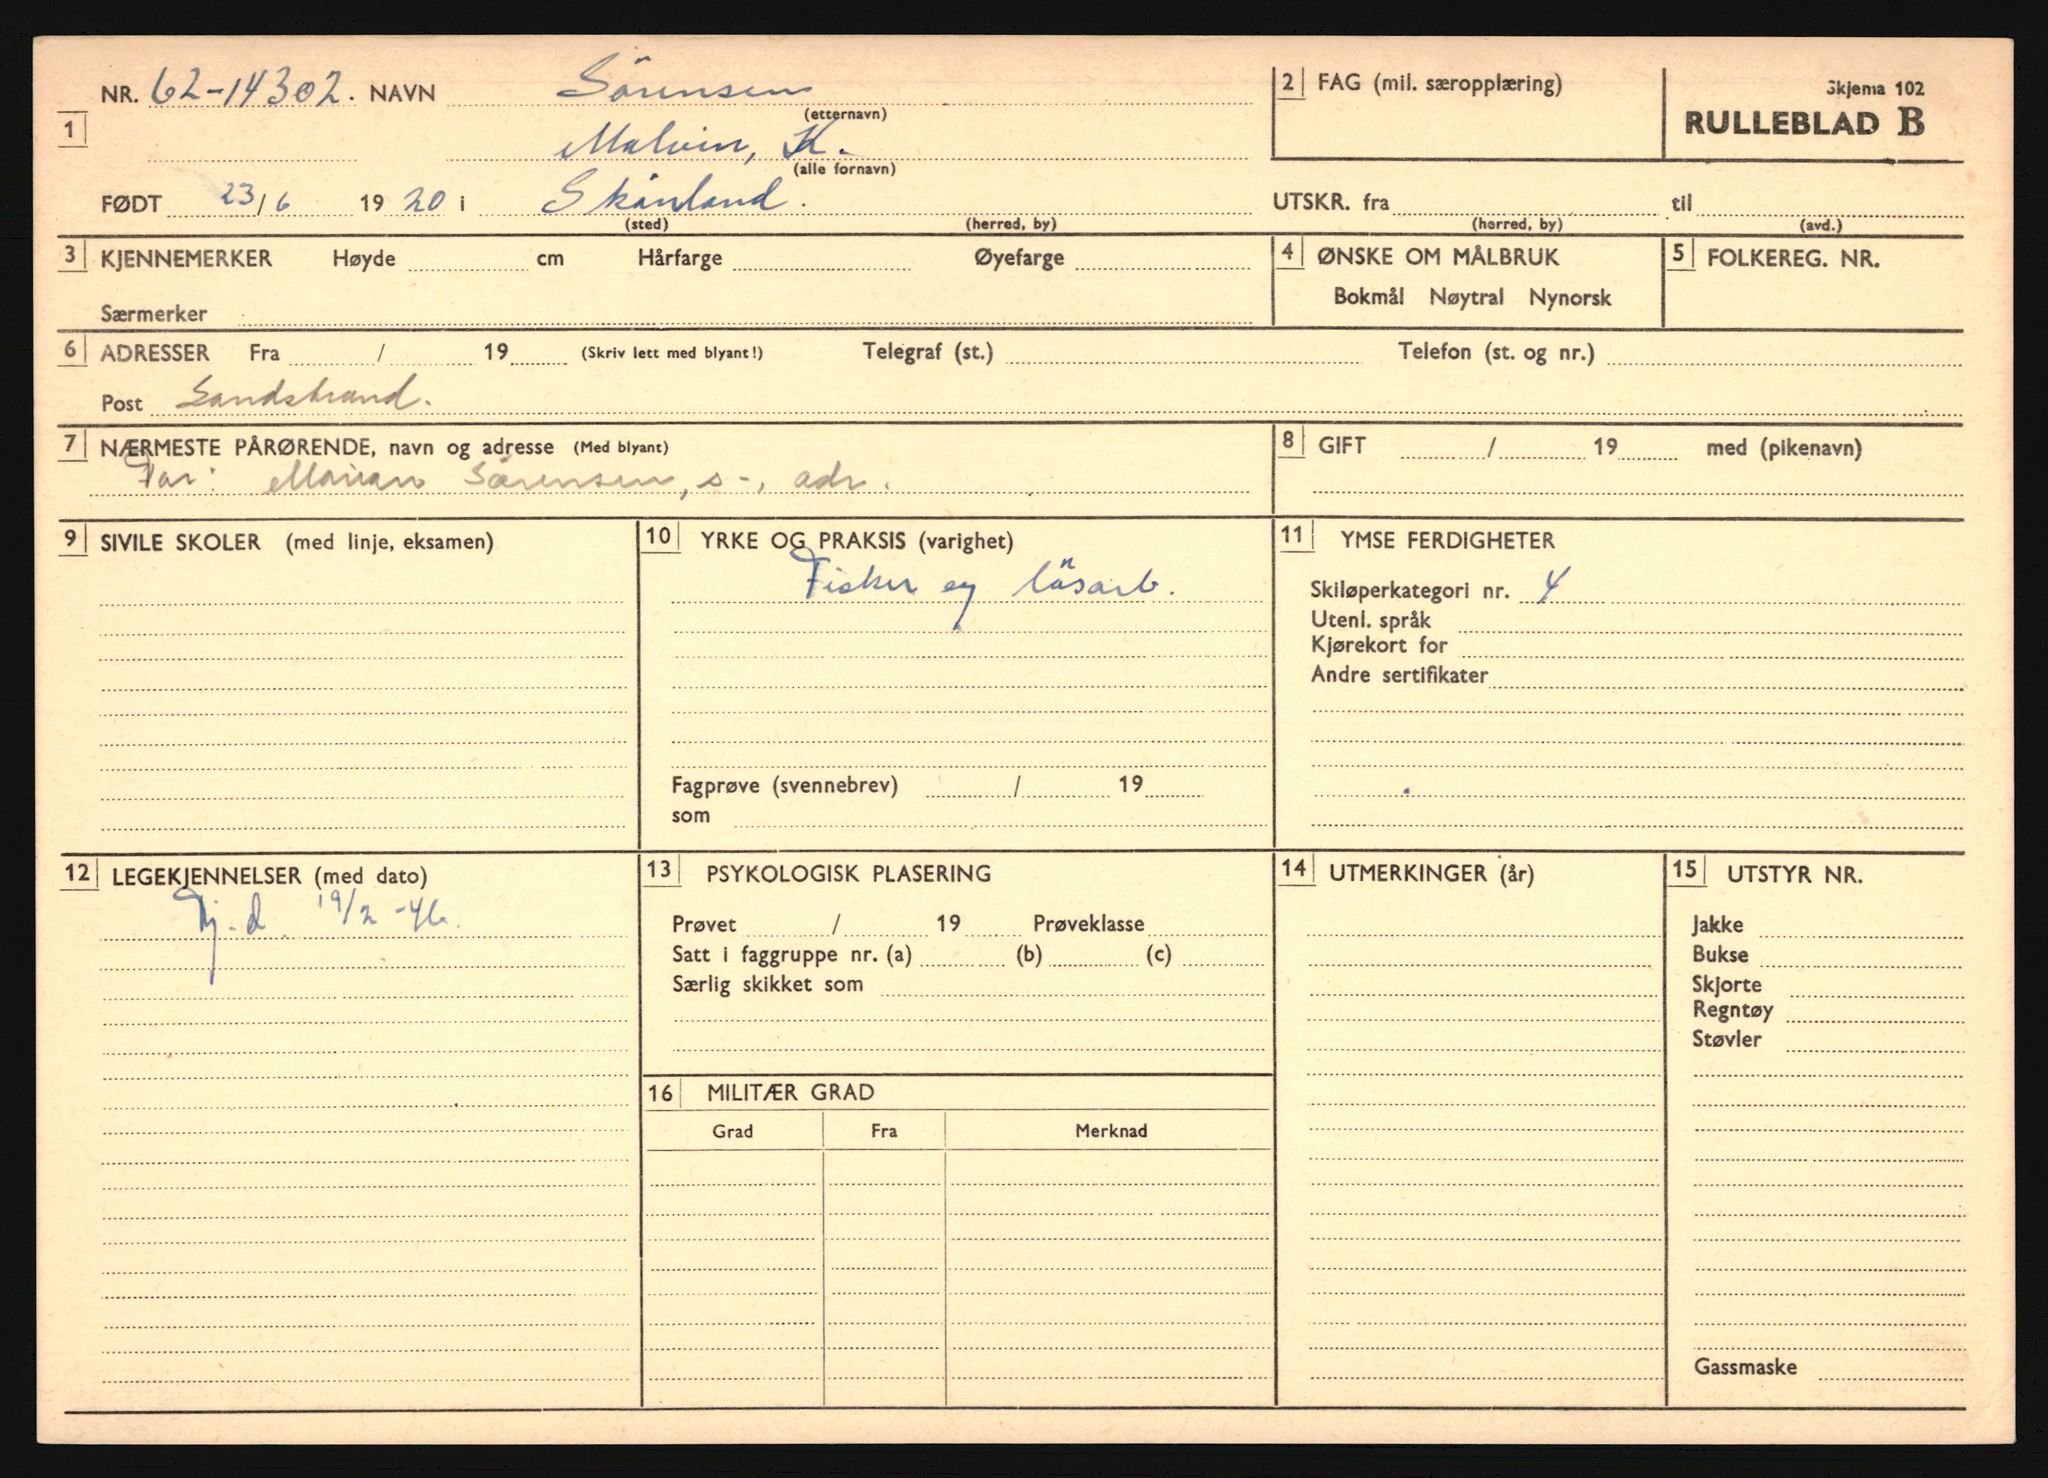 NR. 62-14302. NAVN Sörensen
(etternavn)
1
Malvin, K.
(alle fornavn)
FØDT 23/6 1920 i Skånland.
(sted) (herred, by)
2 FAG (mil. særopplæring)
Skjema 102
RULLEBLAD B
UTSKR. fra til
(herred, by) (avd.)
3 KJENNEMERKER Høyde cm Hårfarge Øyefarge
Særmerker
4 ØNSKE OM MÅLBRUK
Bokmål Nøytral Nynorsk
5 FOLKEREG. NR.
6 ADRESSER Fra / 19 (Skriv lett med blyant!) Telegraf (st.) Telefon (st. og nr.)
Post Sandstrand.
7 NÆRMESTE PÅRØRENDE, navn og adresse (Med blyant)
Far: Sørensen, s-, adr.
8 GIFT / 19 med (pikenavn)
9 SIVILE SKOLER (med linje, eksamen)
10 YRKE OG PRAKSIS (varighet)
Fisker og lösarb.
Fagprøve (svennebrev) / 19
som
11 YMSE FERDIGHETER
Skiløperkategori nr. 4
Utenl. språk
Kjørekort for
Andre sertifikater
12 LEGEKJENNELSER (med dato)
Tj.d. 19/2-46.
13 PSYKOLOGISK PLASERING
Prøvet / 19 Prøveklasse
Satt i faggruppe nr. (a) (b) (c)
Særlig skikket som
16 MILITÆR GRAD
Grad Fra Merknad
14 UTMERKINGER (år)
15 UTSTYR NR.
Jakke
Bukse
Skjorte
Regntøy
Støvler
Gassmaske